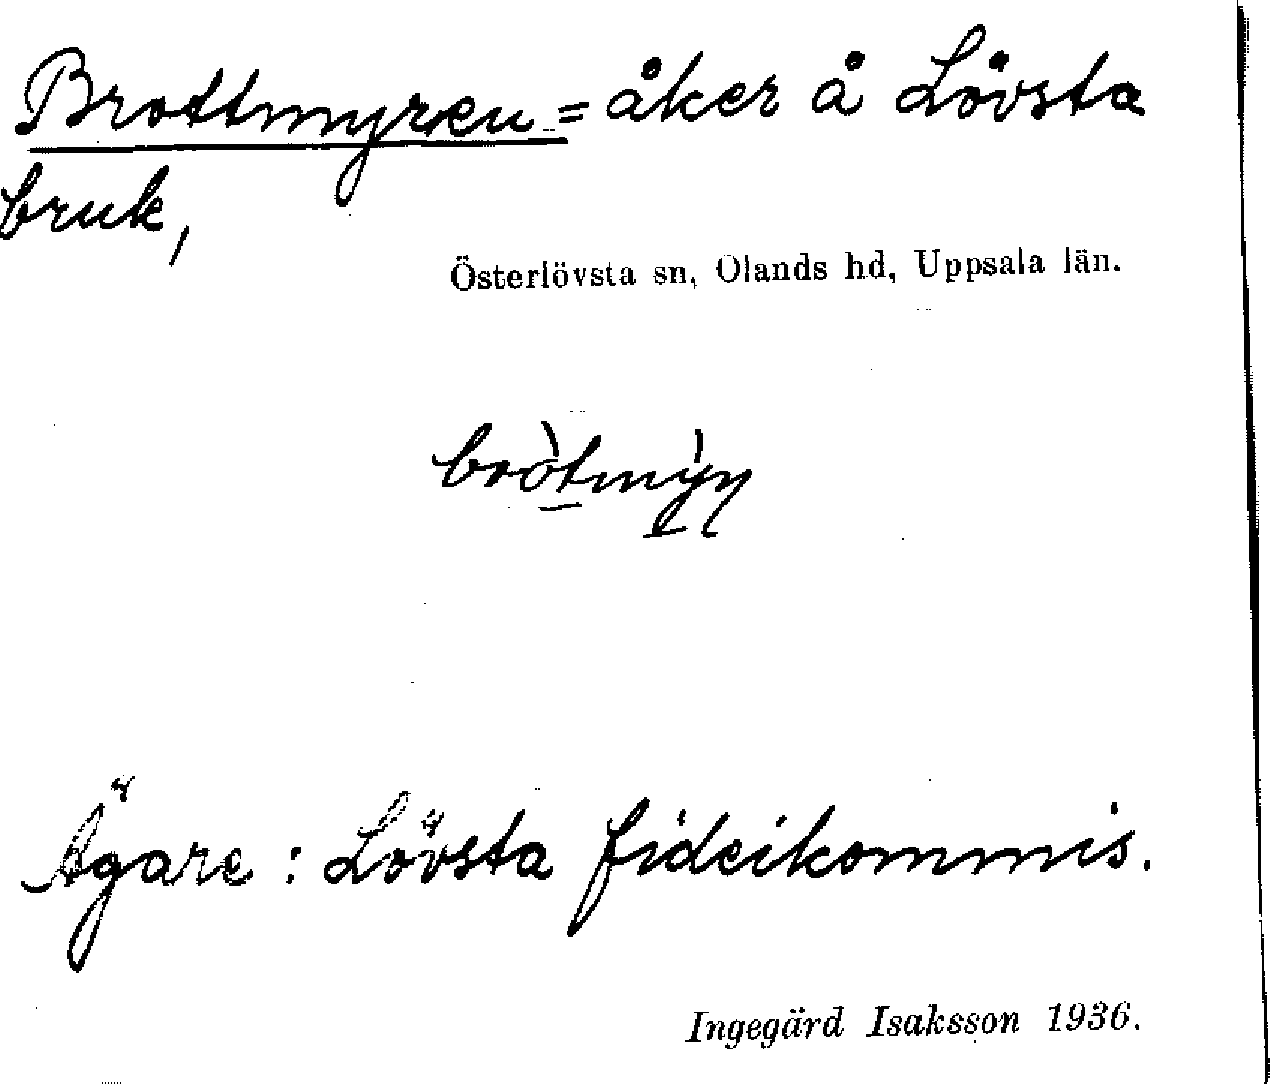 Brottmyren = åker å Lövsta
bruk,
Österlövsta sn, Olands hd, Uppsala län.
bròtmỳn
Ägare : Lövsta fideikommis.
Ingegärd Isaksson 1936.